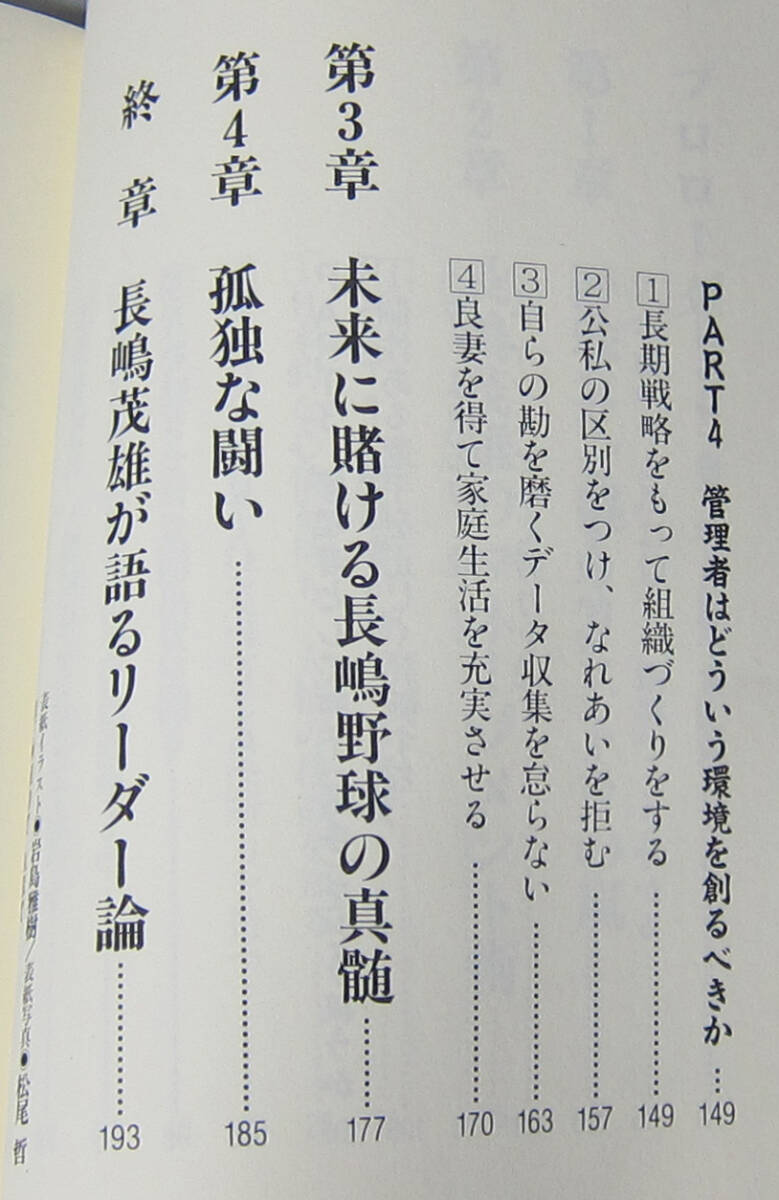 PART4 管理者はどういう環境を創るべきか … 149
1 長期戦略をもって組織づくりをする …… 149
2 公私の区別をつけ、なれあいを拒む …… 157
3 自らの勘を磨くデータ収集を怠らない …… 163
4 良妻を得て家庭生活を充実させる …… 170
第3章 未来に賭ける長嶋野球の真髄 …… 177
第4章 孤独な闘い …… 185
終章 長嶋茂雄が語るリーダー論 …… 193
表紙イラスト●岩島雅樹／表紙写真●松尾 哲